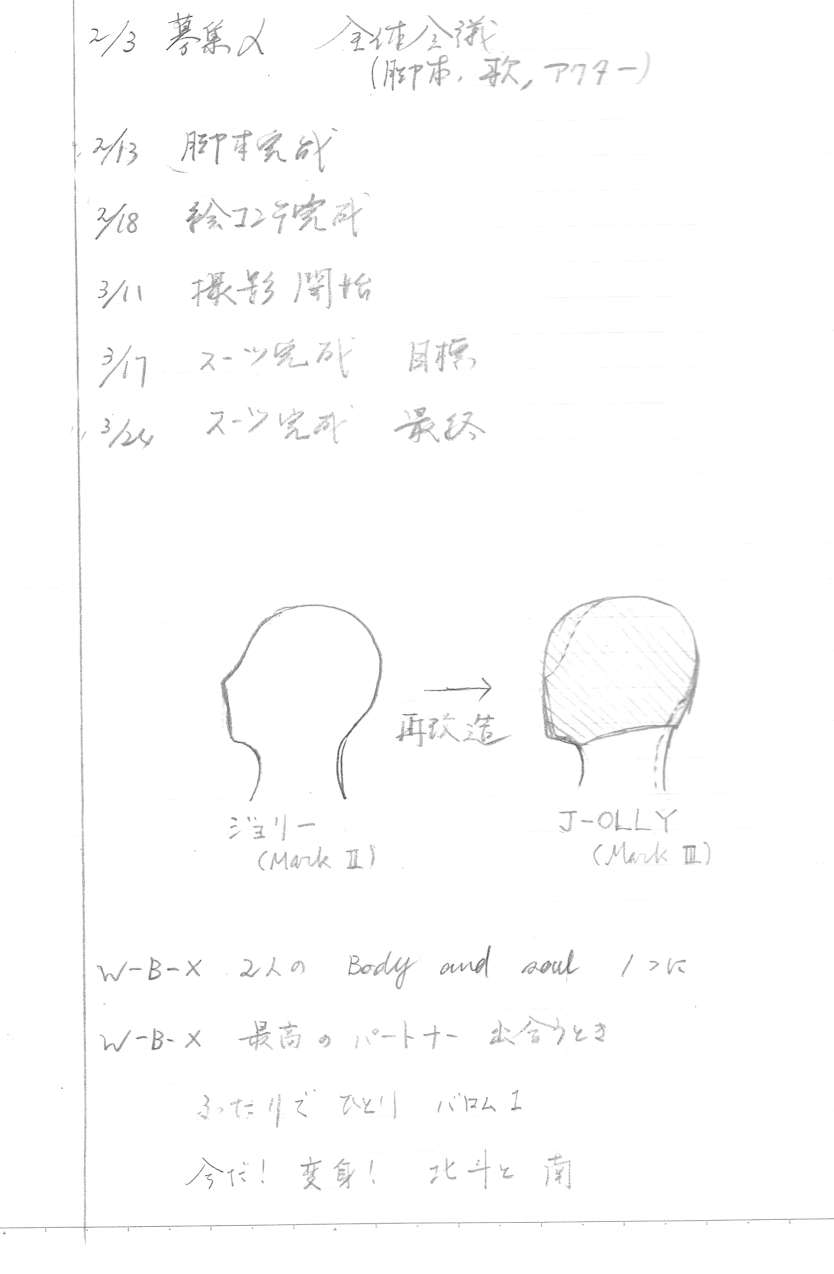 2/3 募集〆 全体会議
(脚本、歌、アクター)
2/13 脚本完成
2/18 絵コンテ完成
3/11 撮影開始
3/17 スーツ完成 目標
3/24 スーツ完成 最終
再改造
ジョリー
(Mark Ⅱ)
J-OLLY
(Mark Ⅲ)
W-B-X 2人の Body and soul 1つに
W-B-X 最高のパートナー 出会うとき
ふたりで ひとり バロム1
今だ! 変身! 北斗と南